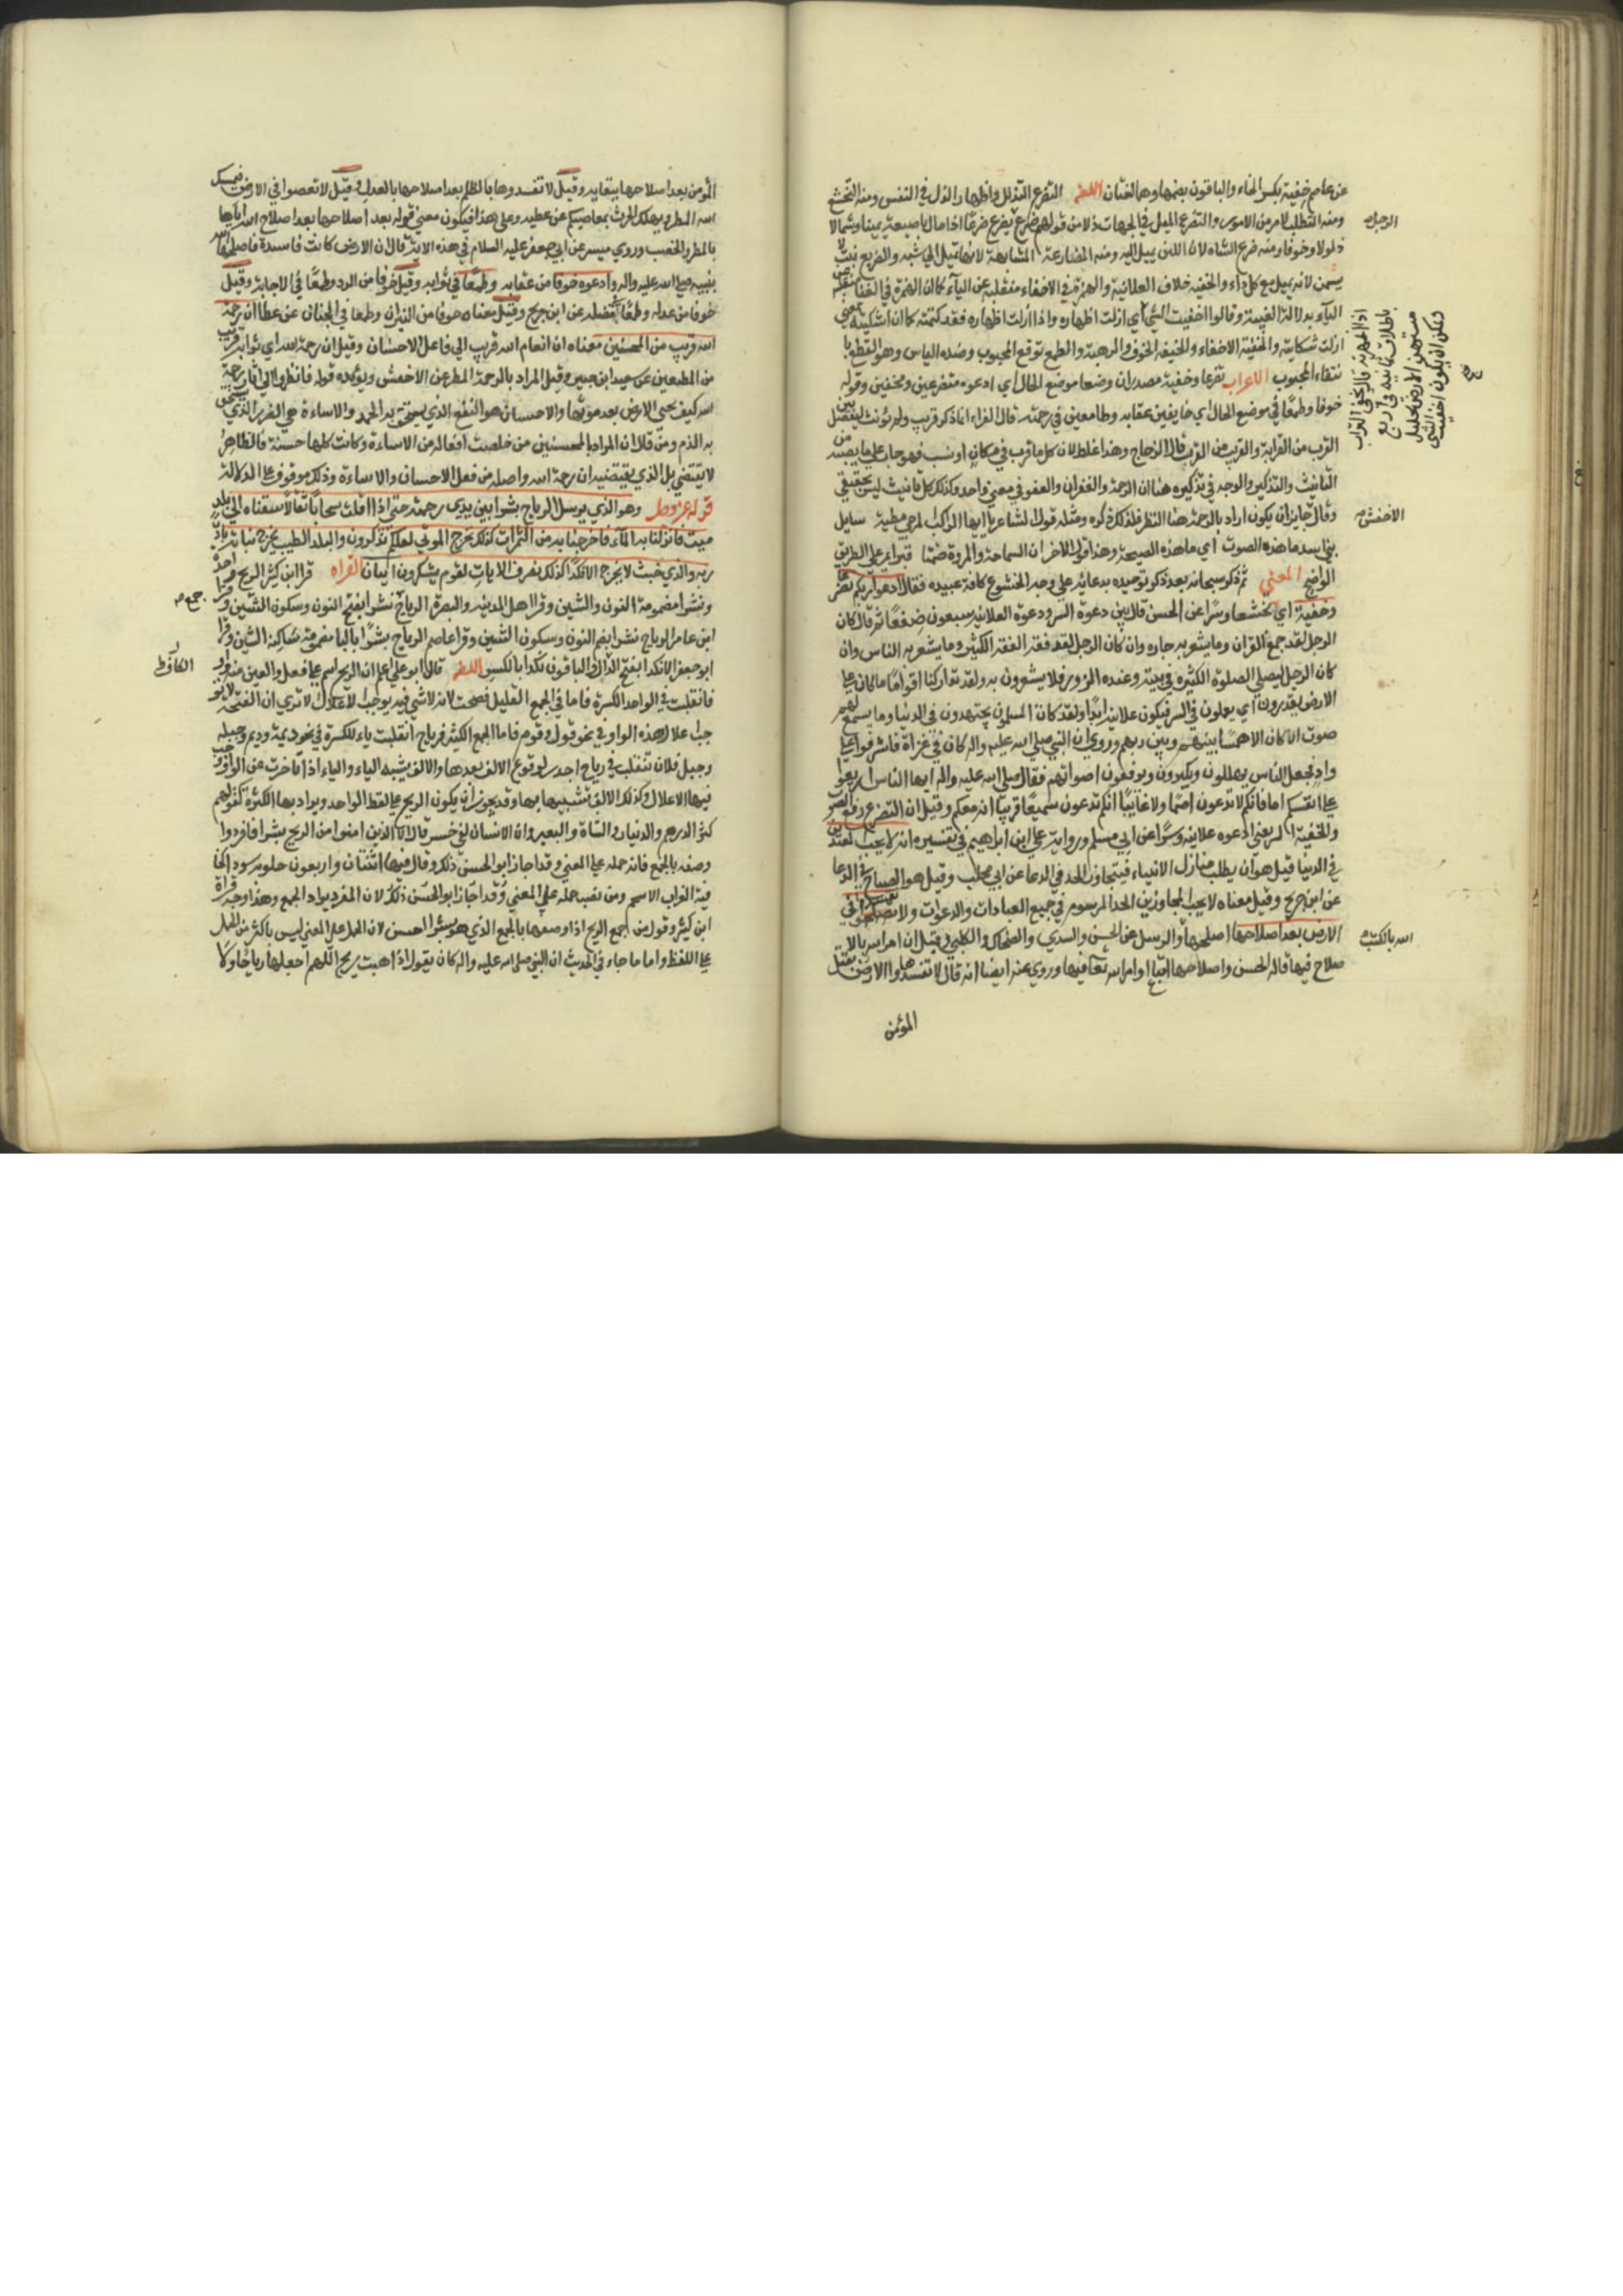 عن عاصم خفية بكسر الخاء والباقون بضمها وهما لغتان اللغة التضرع التذلل واظهار الذل في النفس ومنه التخشع
ومنه التطلب لامر من الامور والتضرع الميل في الجهات ذلا من قولهم ضرع يضرع ضرعا اذا مال باصبعيه يمينا وشمالا
ذلولا وخوفا ومنه ضرع الشاه لان اللبن يميل اليه ومنه المضارعة المشابهة لانها تميل الى شبه والضريع نبت لا
يسمن لانه يميل مع كل داء والخفيه خلاف العلانية والهمزة في الاخفاء منقلبة عن الياء كما ان الهمزة في الغناء منقلبة عن
الياء بدلالة الغنية وقالوا اخفيت الشئ اي ازلت اظهاره واذا ازلت اظهاره فقد كتمته كما ان اشكيته بمعنى
ازلت شكايته والخفية الاخفاء والخيفة الخوف والرهبة والطمع توقع المحبوب وضده الياس وهو القطع با
نتفاء المحبوب الاعراب تضرعا وخفية مصدران وضعا موضع الحال اي ادعوه متضرعين ومخفين وقوله
خوفا وطمعا في موضع الحال اي خايفين عقابه وطامعين في رحمته قال الفراء انما ذكر قريب ولم يؤنث ليفصل بين
القرب من القرابة والقريب من القرب قال الزجاج وهذا غلط لان كل ما قرب في مكان او نسب فهو جار على ما يصيبه من
التانيث والتذكير والوجه في تذكيره هنا ان الرحمة والغفران والعفو في معنى واحد وكذلك كل تانيث ليس بحقيقي
وقال جايز ان يكون اراد بالرحمة هنا النظر فلذلك ذكره ومثله قول الشاعر يا ايها الراكب المزجي مطيته سايل
بني اسد ما هذه الصوت اي ما هذه الصيحة وهذا قول الاخر ان السماحة والمروة ضمنا قبرا بمر و على الطريق
الواضح المعنى ثم ذكر سبحانه بعد ذكر توحيده بدعائه على وجه الخشوع كافة عبيده فقال ادعوا ربكم تضرعا
وخفية اي تخشعا وسرا عن الحسن قال بين دعوة السر ودعوة العلانيه سبعون ضعفا ثم قال كان
الرجل لقد جمع القران وما يشعر به جاره وان كان الرجل لقد فقه الفقه الكثير وما يشعر به الناس وان
كان الرجل ليصلي الصلوة الكثيرة في بيته وعنده الزور فلا يشعرون به ولقد تداركنا اقواما ما كان على
الارض يقدرون اي يعملون في السر فيكون علانية ابدا ولقد كان المسلمون يجتهدون في الدنيا وما يسمع لهم
صوت ان كان الا همسا بينهم وبين ربهم وروي ان النبي صلى الله عليه واله كان في غزاة فاشرفوا على
واد فجعل الناس يهللون ويكبرون ويرفعون اصواتهم فقال صلى الله عليه واله ايها الناس اربعوا
على انفسكم اما فانكم لا تدعون اصما ولا غايبا انكم تدعون سميعا قريبا انه معكم وقيل ان التضرع رفع الصوت
والخفية السر يعني ادعوه علانية وسرا عن ابي مسلم ورواية علي ابن ابراهيم في تفسيره انه لا يحب المعتدين
في الدنيا قيل هو ان يطلب منازل الانبياء فيتجاوز الحد في الدعا عن ابي مجلب وقيل هو الصياح في الدعا
عن ابن جريح وقيل معناه لا يحب المجاوزين الحد المرسوم في جميع العبادات والدعوات ولا تفسدوا في
الارض بعد اصلاحها اصلحها والرسل عن الحسن والسدي والضحاك والكلبي وقيل ان امر الله بالا
صلاح فيها قاله الحسن واصلاحها اتباع اوامر الله تعا فيها وروي عنه ايضا انه قال لا تفسدوا الارض بقتل
المؤمن
الرجل ص
الاخفش ص
الله بالكتب ص
المؤمن بعد اصلاحها ببقايه وقيل لا تفسدوها بالظلم بعد اصلاحها بالعدل وقيل لا تعصوا في الارض فيمسك
الله المطر ويهلك الحرث بمعاصيكم عن عطيه وعلى هذا فيكون معنى قوله بعد اصلاحها بعد اصلاح الله اياها
بالمطر والخصب وروي ميسر عن ابي جعفر عليه السلام في هذه الاية قال ان الارض كانت فاسدة فاصلحها الله
بنبيه صلى الله عليه واله وادعوه خوفا من عقابه وطمعا في ثوابه وقيل خوفا من الرد وطمعا في الاجابة وقيل
خوفا من عدله وطمعا بفضله عن ابن جريح وقيل معناه خوفا من النيران وطمعا في الجنان عن عطا ان رحمة
الله قريب من المحسنين معناه ان انعام الله قريب الى فاعل الاحسان وقيل ان رحمة الله اي ثوابه قريب
من المطيعين عن سعيد ابن جبير وقيل المراد بالرحمة المطر عن الاخفش ويؤيده قوله فانظروا الى اثار رحمة
الله كيف يحيى الارض بعد موتها والاحسان هو النفع الذي يستحق به الحمد والاساءة هي الضرر الذي يستحق
به الذم ومن قال ان المراد بالمحسنين من خلصت افعاله من الاساءة وكانت كلها حسنة فالظاهر
لا يقتضي بل الذي يقتضيه ان رحمة الله واصله من فعل الاحسان والاساءة وذلك موقوف على الدلالة
قوله عز وجل وهو الذي يرسل الرياح بشرا بين يدى رحمته حتى اذا اقلت سحابا ثقالا سقناه الى بلد
ميت فانزلنا به الماء فاخرجنا به من الثمرات كذلك نخرج الموتى لعلكم تذكرون والبلد الطيب يخرج نباته باذن
ربه والذي خبث لا يخرج الا نكدا كذلك نصرف الايات لقوم يشكرون ايتان القراه قرا ابن كثير الريح واحدة
ونشرا مضمومة النون والشين وقرا اهل المدينه والبصرة الرياح نشرا بفتح النون وسكون الشين وقرا
ابن عامر الرياح نشرا بضم النون وسكون الشين وقرا عاصم الرياح بشرا بالبا مضمومة ساكنة الشين وقرا
ابو جعفر الا نكدا بفتح الكاف والباقون نكدا بالكسر اللغة قال ابو علي اعلم ان الريح اسم على فعل والعين منه واو
فانقلبت في الواحد الكسرة فاما في الجمع القليل فصحت لانه لا شي فيه يوجب الاعلال لا ترى ان الفتحة لا
جب اعلال هذه الواو في نحو قول وقوم فاما الجمع الكثير فرياح انقلبت ياء للكسرة في نحو ديمة وديم وحيله
وحيل فلان تنقلب في رياح اجدر لوقوع الالف بعدها والالف يشبه الياء والياء اذا تاخرت عن الواو
فيها الاعلال وكذلك الالف تشبيهها بها وقد يجوز ان يكون الريح على لفظ الواحد ويراد بها الكثرة كقولهم
كثر الدرهم والدينار والشاة والبعير وان الانسان لفي خسر ثم قال الا الذين امنوا من الريح بشرا فافردوا
وصفه بالجمع فانه حمله على المعنى وقد اجاز ابو الحسن ذلك وقال فيها اثنتان واربعون حلوبه سودا كخا
فية الغراب الاسحم ومن نصب حمله على المعنى وقد اجاز ابو الحسن ذلك لان المفرد يراد الجمع وهذا وجه قراة
ابن كثير وقول من جمع الريح اذا وصفها بالجمع الذي هو بشرا احسن لان الحمل على المعنى ليس باكثر من الحمل
على اللفظ واما ما جاء في الحديث ان النبي صلى الله عليه واله كان يقول اذا هبت ريح اللهم اجعلها رياحا ولا
جمع ص